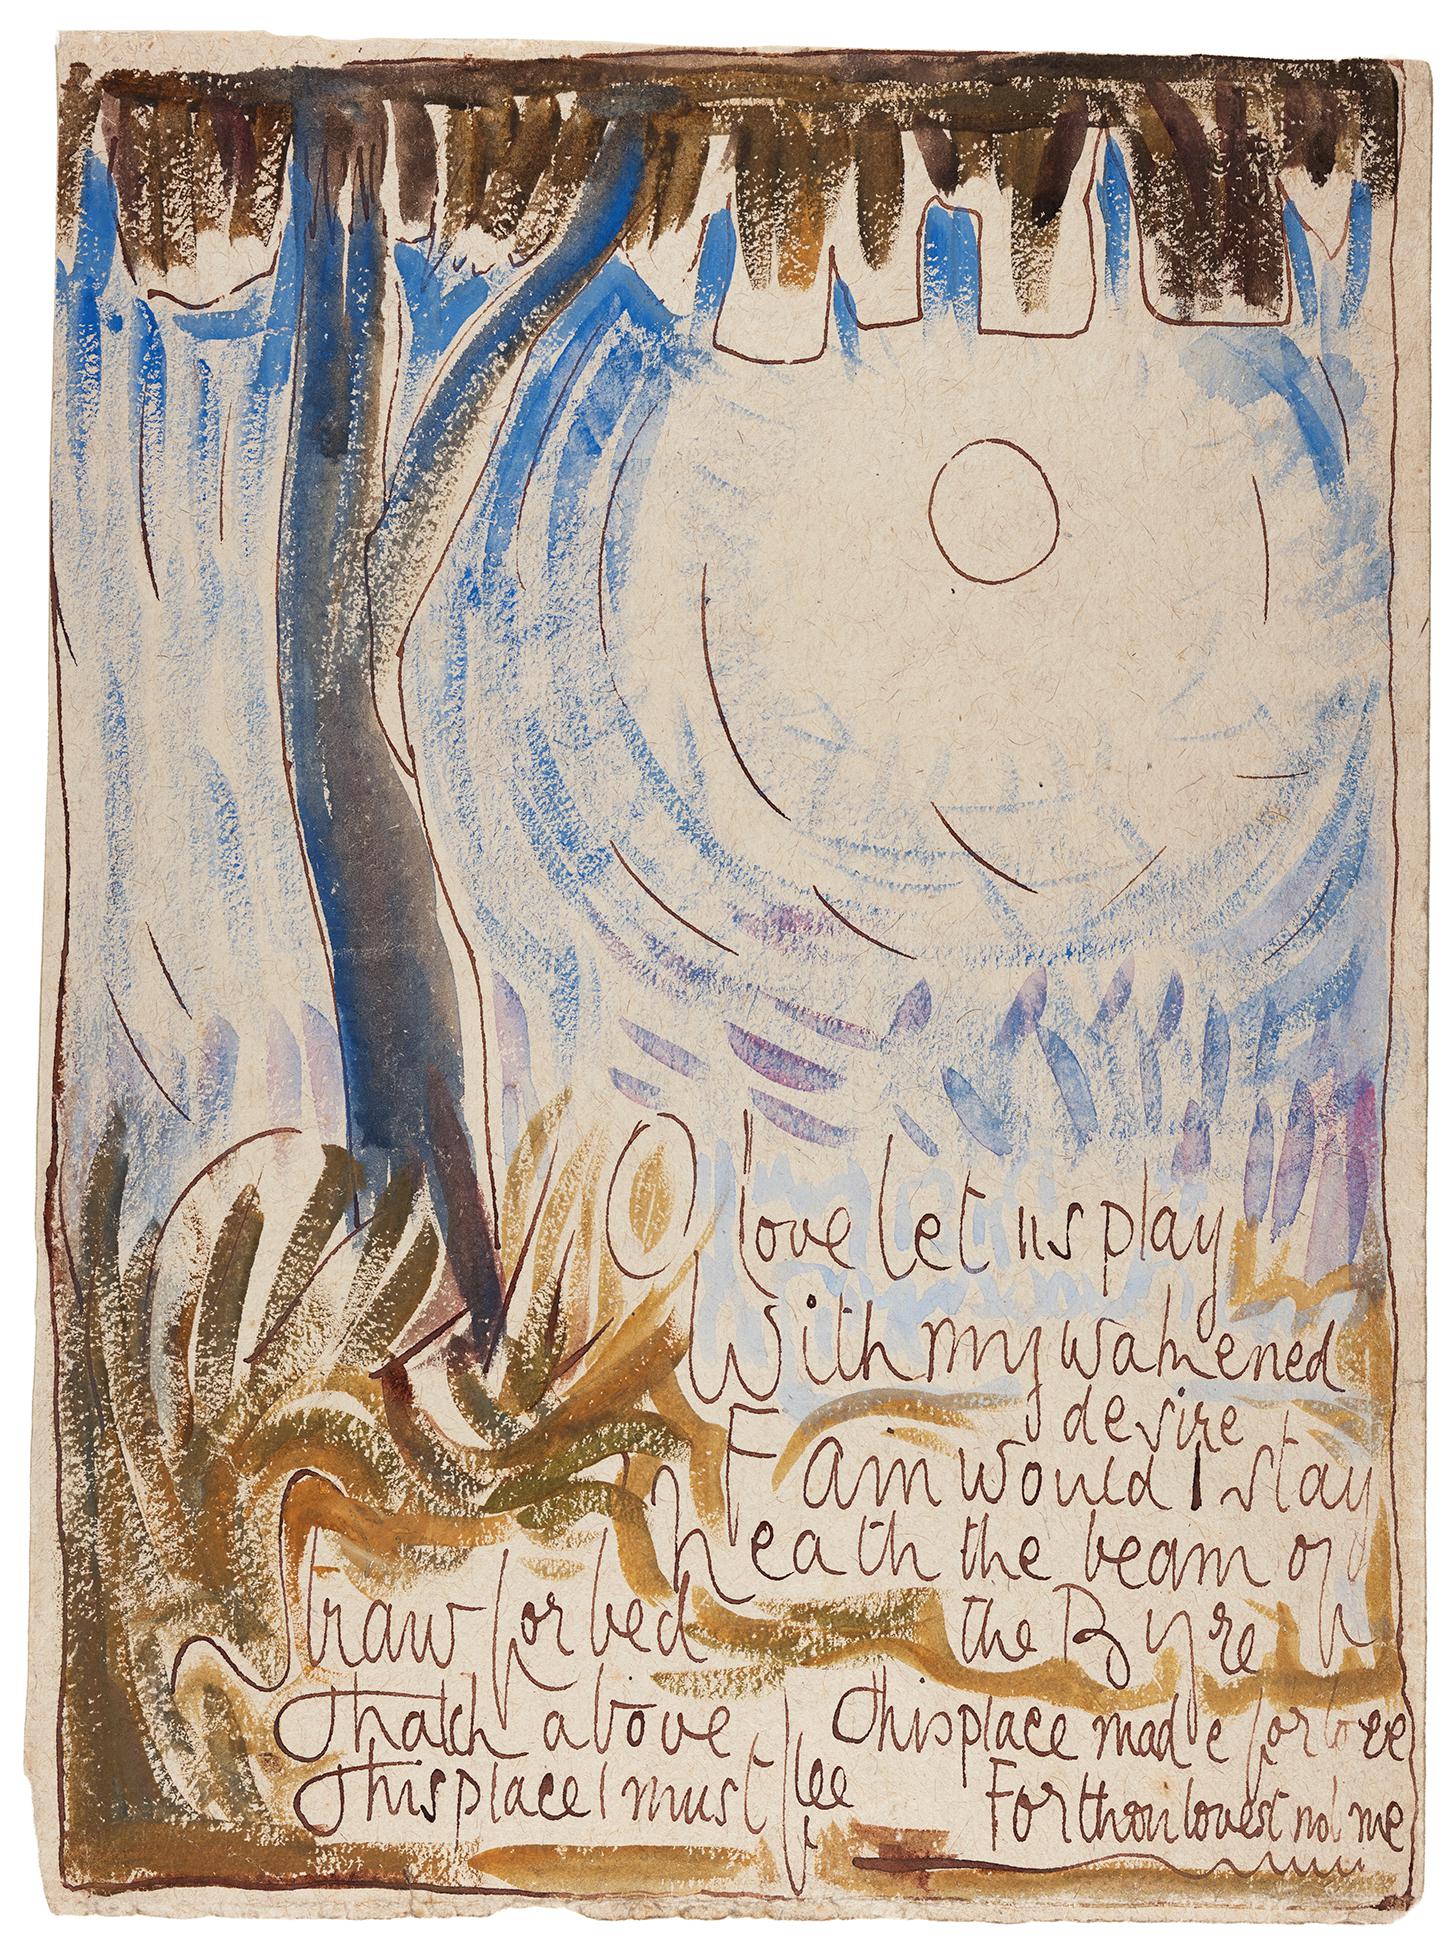 O love let us play
With my wakened
desire
Fain would I stay
neath the beam of
the Byre
Straw for bed
thatch above
this place made for love
this place I must flee
For thou lovest not me